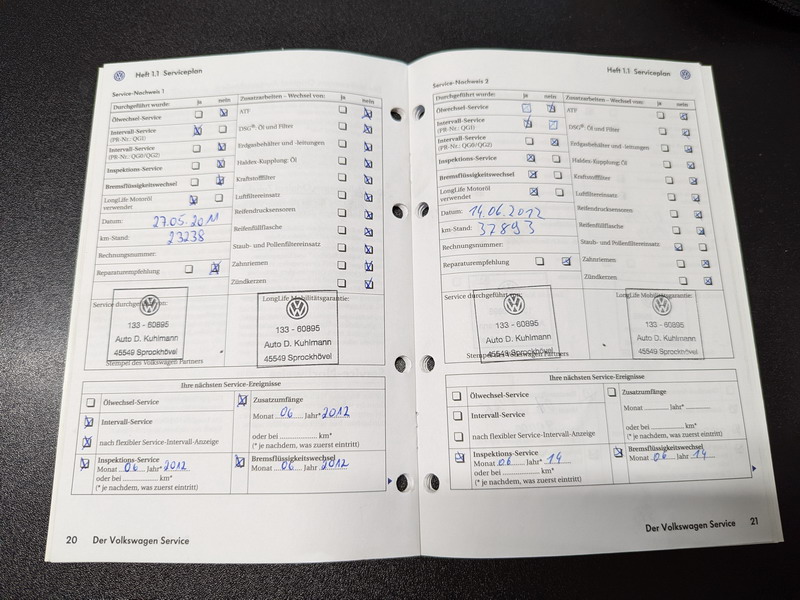 Heft 1.1 Serviceplan
Service-Nachweis 1
Durchgeführt wurde: ja nein
Ölwechsel-Service
Intervall-Service
(PR-Nr.: QG1)
Intervall-Service
(PR-Nr.: QG0/QG2)
Inspektions-Service
Bremsflüssigkeitswechsel
LongLife Motoröl
verwendet
Datum: 27.05.2011
km-Stand: 23238
Rechnungsnummer:
Reparaturempfehlung
Zusatzarbeiten – Wechsel von: ja nein
ATF
DSG®: Öl und Filter
Erdgasbehälter und -leitungen
Haldex-Kupplung: Öl
Kraftstofffilter
Luftfiltereinsatz
Reifendrucksensoren
Reifenfüllflasche
Staub- und Pollenfiltereinsatz
Zahnriemen
Zündkerzen
Service durchgeführt von:
133 - 60895
Auto D. Kuhlmann
45549 Sprockhövel
Stempel des Volkswagen Partners
LongLife Mobilitätsgarantie:
133 - 60895
Auto D. Kuhlmann
45549 Sprockhövel
Ihre nächsten Service-Ereignisse
Ölwechsel-Service
Intervall-Service
nach flexibler Service-Intervall-Anzeige
Zusatzumfänge
Monat 06 Jahr* 2012
oder bei ............... km*
(* je nachdem, was zuerst eintritt)
Inspektions-Service
Monat 06 Jahr* 2012
oder bei ............... km*
(* je nachdem, was zuerst eintritt)
Bremsflüssigkeitswechsel
Monat 06 Jahr 2012
20 Der Volkswagen Service
Heft 1.1 Serviceplan
Service-Nachweis 2
Durchgeführt wurde: ja nein
Ölwechsel-Service
Intervall-Service
(PR-Nr.: QG1)
Intervall-Service
(PR-Nr.: QG0/QG2)
Inspektions-Service
Bremsflüssigkeitswechsel
LongLife Motoröl
verwendet
Datum: 14.06.2012
km-Stand: 37893
Rechnungsnummer:
Reparaturempfehlung
Zusatzarbeiten – Wechsel von: ja nein
ATF
DSG®: Öl und Filter
Erdgasbehälter und -leitungen
Haldex-Kupplung: Öl
Kraftstofffilter
Luftfiltereinsatz
Reifendrucksensoren
Reifenfüllflasche
Staub- und Pollenfiltereinsatz
Zahnriemen
Zündkerzen
Service durchgeführt von:
133 - 60895
Auto D. Kuhlmann
45549 Sprockhövel
Stempel des Volkswagen Partners
LongLife Mobilitätsgarantie:
133 - 60895
Auto D. Kuhlmann
45549 Sprockhövel
Ihre nächsten Service-Ereignisse
Ölwechsel-Service
Intervall-Service
nach flexibler Service-Intervall-Anzeige
Zusatzumfänge
Monat ........... Jahr* ...........
oder bei ............... km*
(* je nachdem, was zuerst eintritt)
Inspektions-Service
Monat 06 Jahr* 14
oder bei ............... km*
(* je nachdem, was zuerst eintritt)
Bremsflüssigkeitswechsel
Monat 06 Jahr 14
Der Volkswagen Service 21